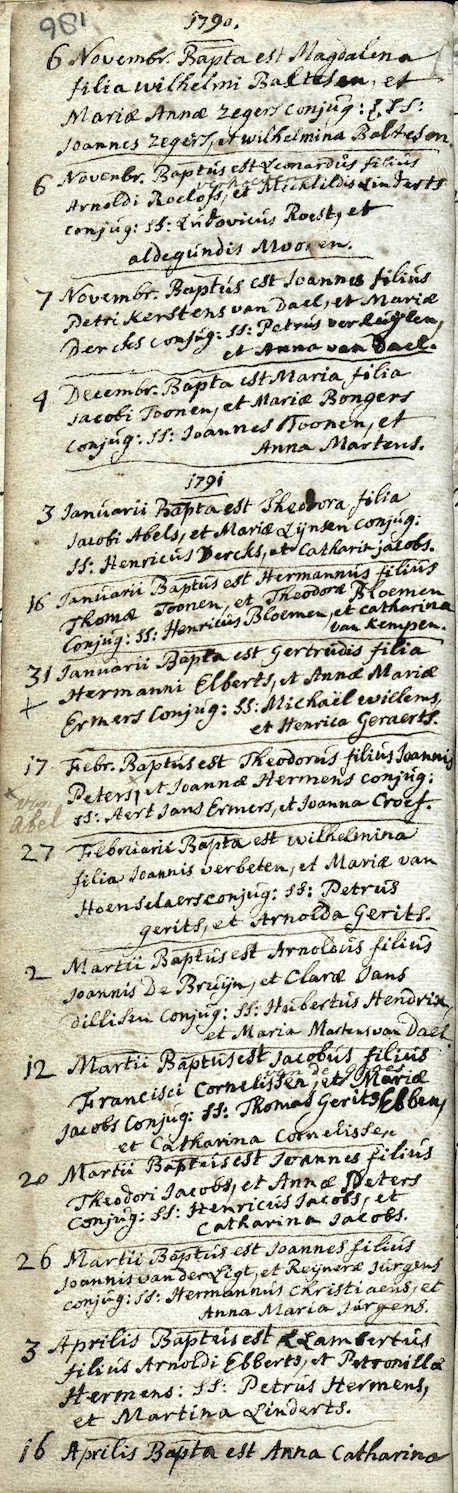 186
1790.
6 Novembr. Bapta est Magdalena
filia wilhelmi Baltesen, et
Mariæ Annæ zegers conjug: SS:
Joannes zegers, et wilhelmina Baltesen.
6 Novenbr. Baptus est Leonardus filius
Arnoldi Roelofs, et Michtildis Linderts
conjug: SS: Ludovicus Roest, et
aldegundis Mooren.
7 Novembr. Baptus est Joannes filius
Petri Kerstens van Dael, et Mariæ
Dercks conjug: SS: Petrus verkuylen,
et Anna van Dael.
4 Decembr. Bapta est Maria filia
Jacobi Toonen, et Mariæ Bongers
conjug: SS: Joannes Toonen, et
Anna Martens.
1791
3 Januarii Bapta est Theodora filia
Jacobi Abels, et Mariæ Lijnsen conjug:
SS: Henricus Dercks, et Catharin jacobs.
16 Januarii Baptus est Hermannus filius
Thomæ Toonen, et Theodoræ Bloemen
Conjug: SS: Henricus Bloemen, et catharina
van Kempen.
31 Januarii Bapta est Gertrudis filia
Hermanni Elberts, et Annæ Mariæ
Ermers Conjug: SS: Michaël willems,
et Henrica Geraerts.
17 Febr. Baptus est Theodorus filius Joannis
Peters, et Joannæ Hermens conjug:
SS: Aert Jans Ermers, et Joanna Croef.
Abel
27 Februarii Bapta est wilhelmina
filia Joannis verbeten, et Mariæ van
Hoenselaers conjug: SS: Petrus
gerits, et Arnolda Gerits.
2 Martii Baptus est Arnoldus filius
Joannis De Bruijn, et Claræ Jans
dillisen Conjug: SS: Hubertus Hendrix,
et Maria Martens van Dael
12 Martii Baptus est Jacobus filius
Francisci Cornelissen, et Mariæ
Jacobs Conjug: SS: Thomas Gerits Ebben,
et Catharina Cornelissen
20 Martii Baptus est Joannes filius
Theodori Jacobs, et Annæ Peters
Conjug: SS: Henricus Jacobs, et
Catharina Jacobs.
26 Martii Baptus est Joannes filius
Joannis van der Ligt, et Reyneræ Jurgens
conjug: SS: Hermannus Christiaens, et
Anna Maria Jurgens.
3 Aprilis Baptus est Lambertus
filius Arnoldi Ebberts, et Petronillæ
Hermens: SS: Petrus Hermens,
et Martina Linderts.
16 Aprilis Bapta est Anna Catharina